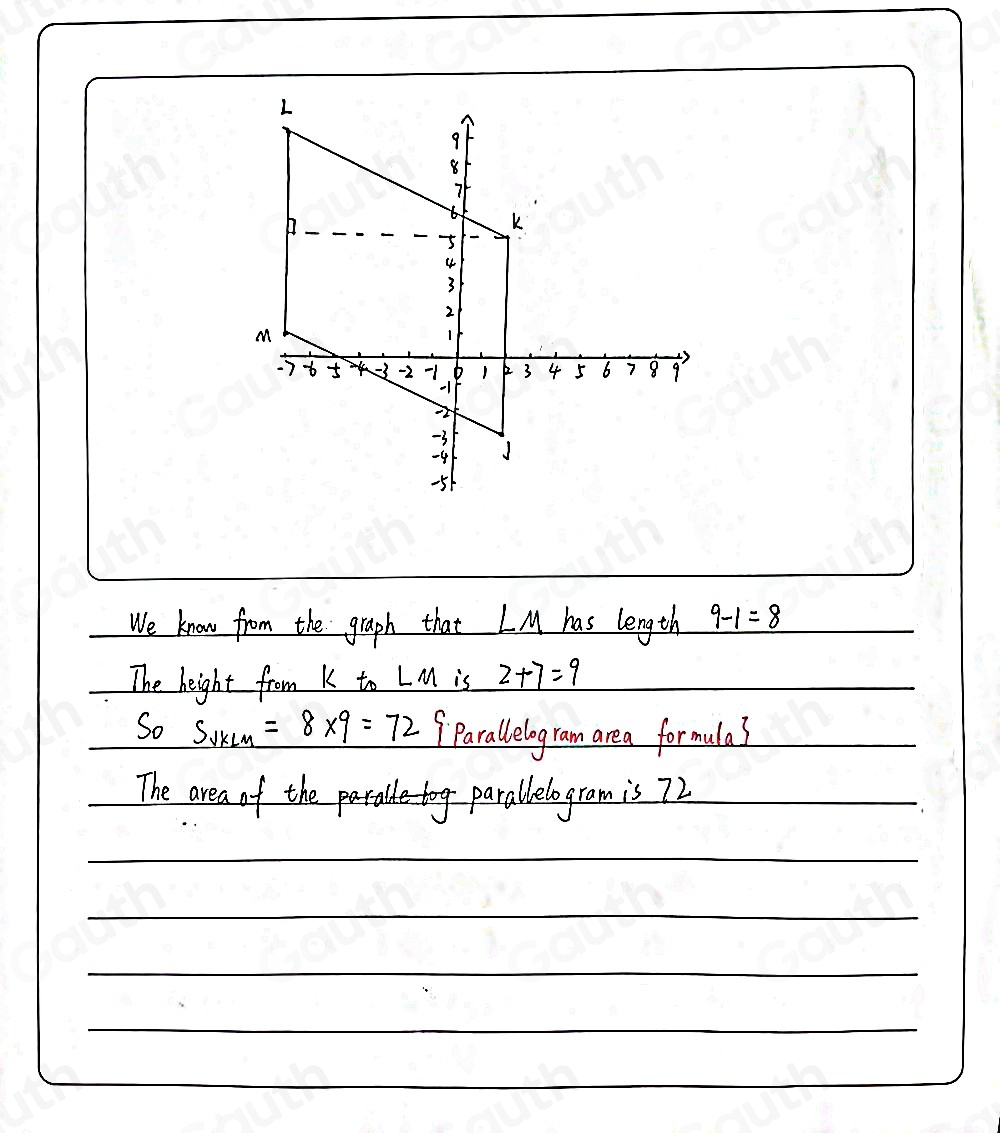 L
9
8
7
6
K
5
4
3
2
M
1
-7 -6 -5 -4 -3 -2 -1 0 1 2 3 4 5 6 7 8 9
-1
-2
-3
J
-4
-5
We know from the graph that LM has length 9-1=8
The height from K to LM is 2+7=9
So SJKLM = 8×9=72 {Parallelogram area formula}
The area of the paralle log parallelogram is 72
Gauth